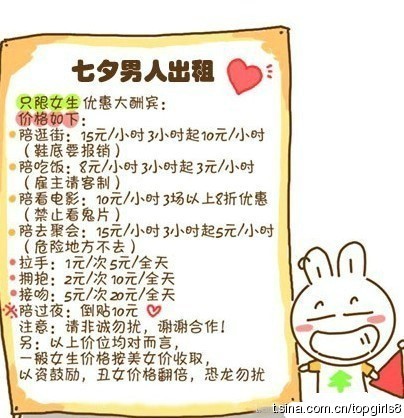 七夕男人出租
只限女生优惠大酬宾：
价格如下：
陪逛街：15元/小时3小时起10元/小时
（鞋底要报销）
陪吃饭：8元/小时3小时起3元/小时
（雇主请客制）
陪看电影：10元/小时3场以上8折优惠
（禁止看鬼片）
陪去聚会：15元/小时3小时起5元/小时
（危险地方不去）
拉手：1元/次5元/全天
拥抱：2元/次10元/全天
接吻：5元/次20元/全天
※陪过夜：倒贴10元
注意：请非诚勿扰，谢谢合作！
另：以上价位均对而言，
一般女生价格按美女价收取，
以资鼓励，丑女价格翻倍，恐龙勿扰
t.sina.com.cn/topgirls8